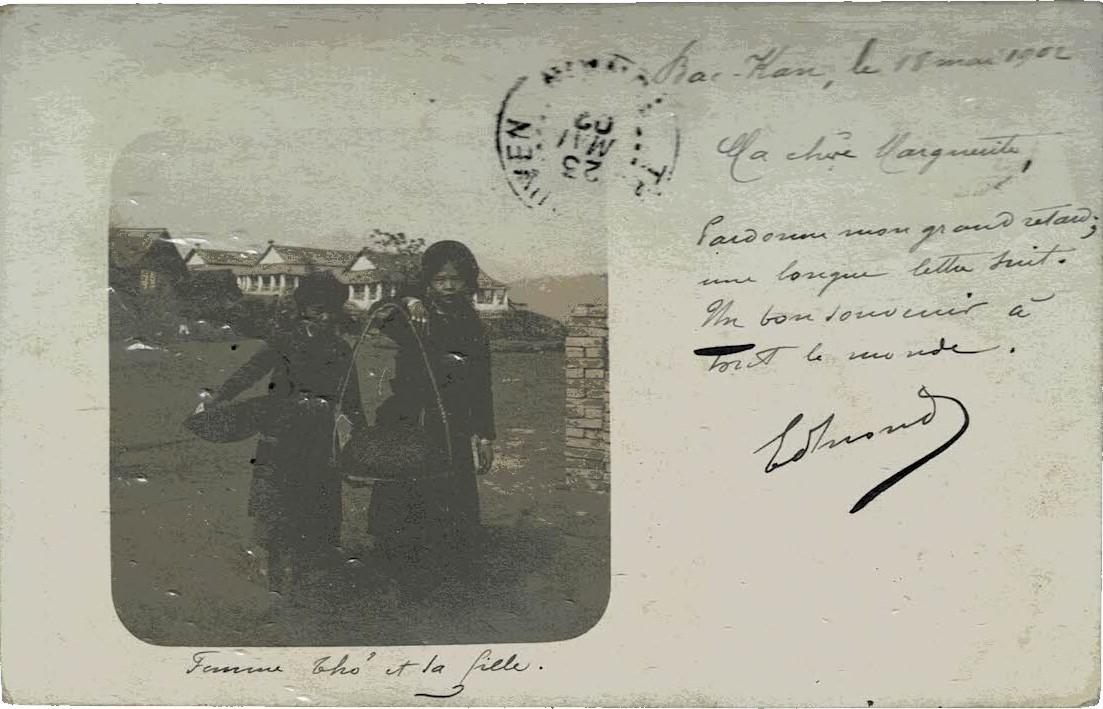 Bac-Kan, le 18 mai 1902
Ma chère Marguerite,
Pardonne mon grand retard;
une longue lettre suit.
Un bon souvenir à
tout le monde.
Edmond
23
MAI
02
Femme thô et sa fille.